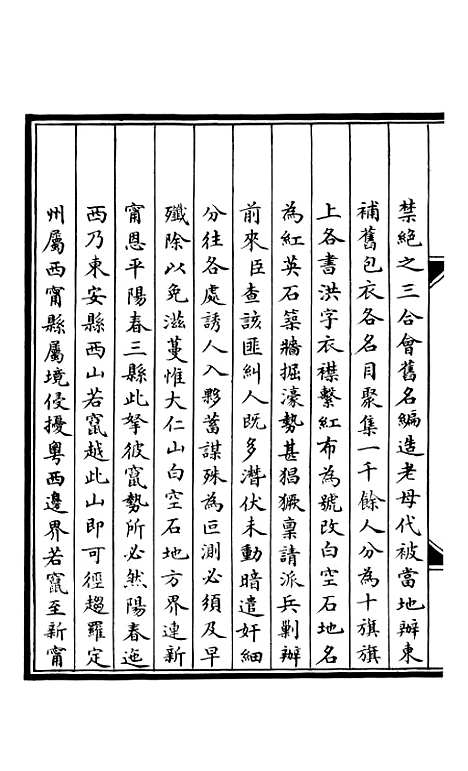 禁絕之三合會舊名編造老母代被當地辦東
補舊包衣各名目聚集一千餘人分為十旗旗
上各書洪字衣襟繫紅布為號改白空石地名
為紅英石築牆掘濠勢甚猖獗稟請派兵剿辦
前來臣查該匪糾人既多潛伏未動暗遣奸細
分往各處誘人入夥蓄謀殊為叵測必須及早
殲除以免滋蔓惟大仁山白空石地方界連新
甯恩平陽春三縣此拏彼竄勢所必然陽春迤
西乃東安縣西山若竄越此山即可徑趨羅定
州屬西甯縣屬境侵擾粵西邊界若竄至新甯